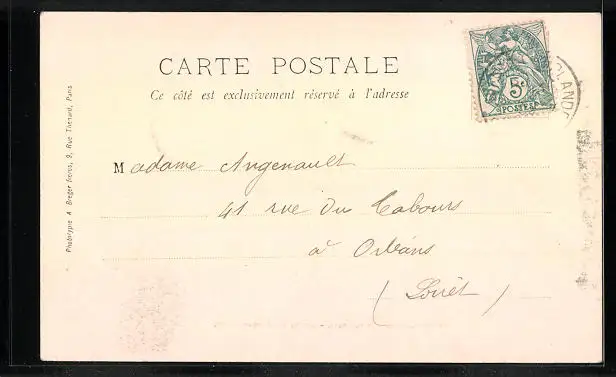 CARTE POSTALE
Ce côté est exclusivement réservé à l'adresse
5c
POSTES
Madame Angenault
41 rue du Cabours
à Orléans
(Loiret)
Phototypie A. Breger frères, 9, Rue Thénard, Paris